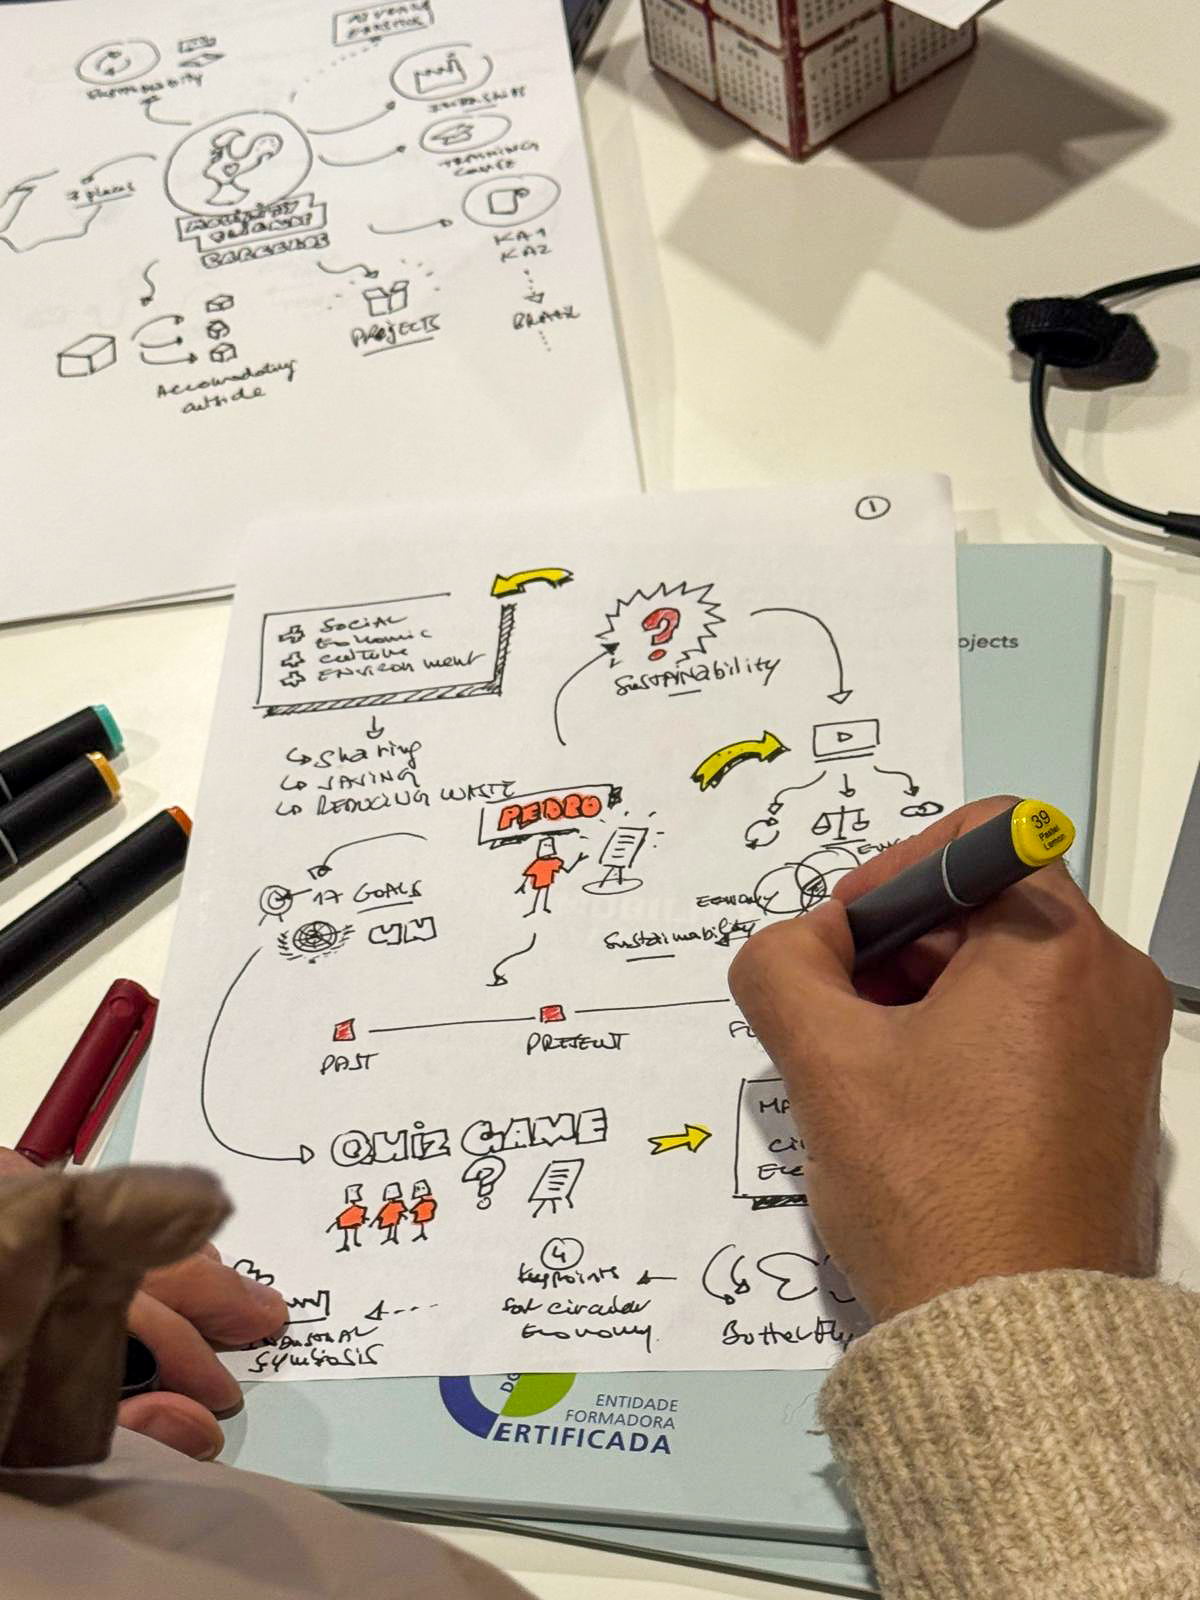 Sustainability
INTERNSHIPS
TRAINING
COURSE
7 places
KA1
KA2
BRAZIL
PROJECTS
Accomodating
outside
1
SOCIAL
Economic
culture
ENVIRONMENT
SUSTAINability
Sharing
SAVING
REDUCING WASTE
PEDRO
17 GOALS
UN
ECONOMY
Sustainability
PAST
PRESENT
QUIZ GAME
4
Keypoints
for circular
Economy.
Butterfly
INDUSTRIAL
SYMBIOSIS
39
Pastel
Lemon
ojects
ENTIDADE
FORMADORA
ERTIFICADA